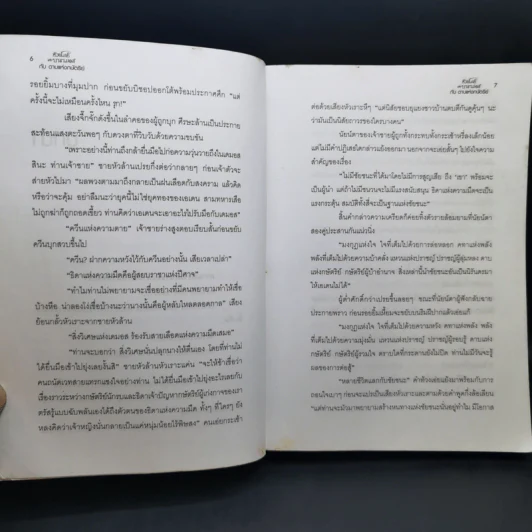 6
หัวขโมยแห่งบารามอส
กับ ดาบแห่งกษัตริย์
รอยยิ้มบางที่มุมปาก ก่อนขยับบิชอปออกโต้พร้อมประกาศศึก “แต่
ครั้งนี้จะไม่เหมือนครั้งไหน รุก!”
เสียงจึ๊กจั๊กดังขึ้นในลำคอของผู้ถูกบุก ศีรษะล้านเป็นประกาย
สะท้อนแสงตะวันพอๆ กับดวงตาที่วิบวับด้วยความขบขัน
“เพราะอย่างนี้ท่านถึงกล้ายื่นมือไปก่อความวุ่นวายถึงในเดมอส
สินะ ท่านเจ้าชาย” ชายหัวล้านเปรยกึ่งต่อว่ากลายๆ ก่อนเจ้าตัวจะ
ส่ายหัวไปมา “ผลพวงตามมาถึงกลายเป็นฝนเลือดกับสงคราม แล้วคิด
หรือว่าจะคุ้ม อย่าลืมนะว่ายุคนี้ไม่ใช่ยุคทองของเอเดน สามทหารเสือ
ไม่ถูกฆ่าก็ถูกถอดเขี้ยว ท่านคิดว่าเอเดนจะเอาอะไรไปรับมือกับเดมอส”
“ควีนแห่งความตาย” เจ้าชายร่างสูงตอบเรียบสั้นก่อนขยับ
ควีนบุกสวบขึ้นไป
“ควีน? ฝากความหวังไว้กับควีนอย่างนั้น เสียเวลาเปล่า”
“ธิดาแห่งความมืดคือผู้สยบราชาแห่งปีศาจ”
“ทำไมท่านไม่พยายามจะเชื่ออย่างที่มีคนพยายามทำให้เชื่อ
บ้างหือ น่าลองโง่เชื่อบ้างนะว่านางนั้นคือผู้หลับใหลตลอดกาล” เสียง
ย้อนกลั้วหัวเราะจากชายหัวล้าน
“สิ่งวิเศษแห่งเดมอส ร้องรับสายเลือดแห่งความมืดเสมอ”
“ท่านจะบอกว่า สิ่งวิเศษนั่นปลุกนางให้ตื่นเอง โดยที่ท่านไม่
ได้ยื่นมือเข้าไปยุ่งเลยงั้นสิ” ชายหัวล้านหัวเราะแค่น “จะให้ข้าเชื่อว่า
คนถนัดเวทสายแทรกแซงใจอย่างท่าน ไม่ได้ยื่นมือเข้าไปยุ่งอะไรเลยกับ
เรื่องราวระหว่างกษัตริย์นักรบและธิดาเจ้าปัญหา
หลงคิดว่าเจ้าหญิงนั่นกลายเป็นแค่หนุ่มน้อยไร้พิษสง” คนเอ่ยกระเซ้า
หัวขโมยแห่งบารามอส
กับ ดาบแห่งกษัตริย์
7
ต่อด้วยเสียงหัวเราะหึๆ “แต่นิสัยชอบยุแยงชาวบ้านตบตีกันดูคุ้นๆ นะ
ว่ามันเป็นนิสัยถาวรของใครบางคน”
นัยน์ตาของเจ้าชายผู้ถูกทั้งกระทบทั้งกระเซ้าหรี่ลงเล็กน้อย
แต่ไม่มีคำปฏิเสธใดกล่าวแย้งออกมา นอกจากจะเอ่ยสั้นๆ ไปยังหัวใจ
สำคัญของเรื่อง
“ไม่มีชัยชนะที่ได้มาโดยไม่มีการสูญเสีย ถึง ‘เขา’ พร้อมจะ
เป็นผู้นำ แต่ถ้าไม่มีชนวนจะไม่มีแรงสนับสนุน ธิดาแห่งความมืดจะเป็น
แรงกระตุ้น สมบัติทั้งสี่จะเป็นฐานแห่งชัยชนะ”
สิ้นคำกล่าวความเครียดก็ค่อยทิ้งตัวรายล้อมยามที่นัยน์ตา
สองคู่ประสานกันแน่วนิ่ง
“มงกุฎแห่งใจ ใจที่เต็มไปด้วยการล่อหลอก คทาแห่งพลัง
พลังที่เต็มไปด้วยความคลุ้มคลั่ง แหวนแห่งปราชญ์ ปราชญ์ผู้ลุ่มหลง ดาบ
แห่งกษัตริย์ กษัตริย์ผู้บ้าอำนาจ สิ่งเหล่านี้นำชัยชนะอันเป็นนิรันดรมา
ให้เอเดนไม่ได้”
ผู้ต่ำศักดิ์กว่าเปรยขึ้นลอยๆ ขณะที่นัยน์ตาผู้ฟังกลับฉาย
ประกายพราว ก่อนรอยยิ้มเหี้ยมจะขยับบนริมฝีปากแล้วเอ่ยแก้
“มงกุฎแห่งใจ ใจที่เต็มไปด้วยความหวัง คทาแห่งพลัง พลัง
ที่เต็มไปด้วยความมุ่งมั่น แหวนแห่งปราชญ์ ปราชญ์ผู้รอบรู้ ดาบแห่ง
กษัตริย์ กษัตริย์ผู้รวมใจ ตราบใดที่กระดานยังไม่ปิด ท่านไม่มีวันจะรู้
ผลของการต่อสู้”
“หลายชีวิตแลกกับชัยชนะ” คำท้วงอ่อนยังมาพร้อมกับการ
ถอนใจเบาๆ ก่อนจะแปรเป็นเสียงหัวเราะและตามด้วยคำพูดกึ่งล้อเลียน
“แต่ท่านจะมัวมาพยายามสร้างหนทางแห่งชัยชนะนั่นอยู่ทำไม มีโอกาส